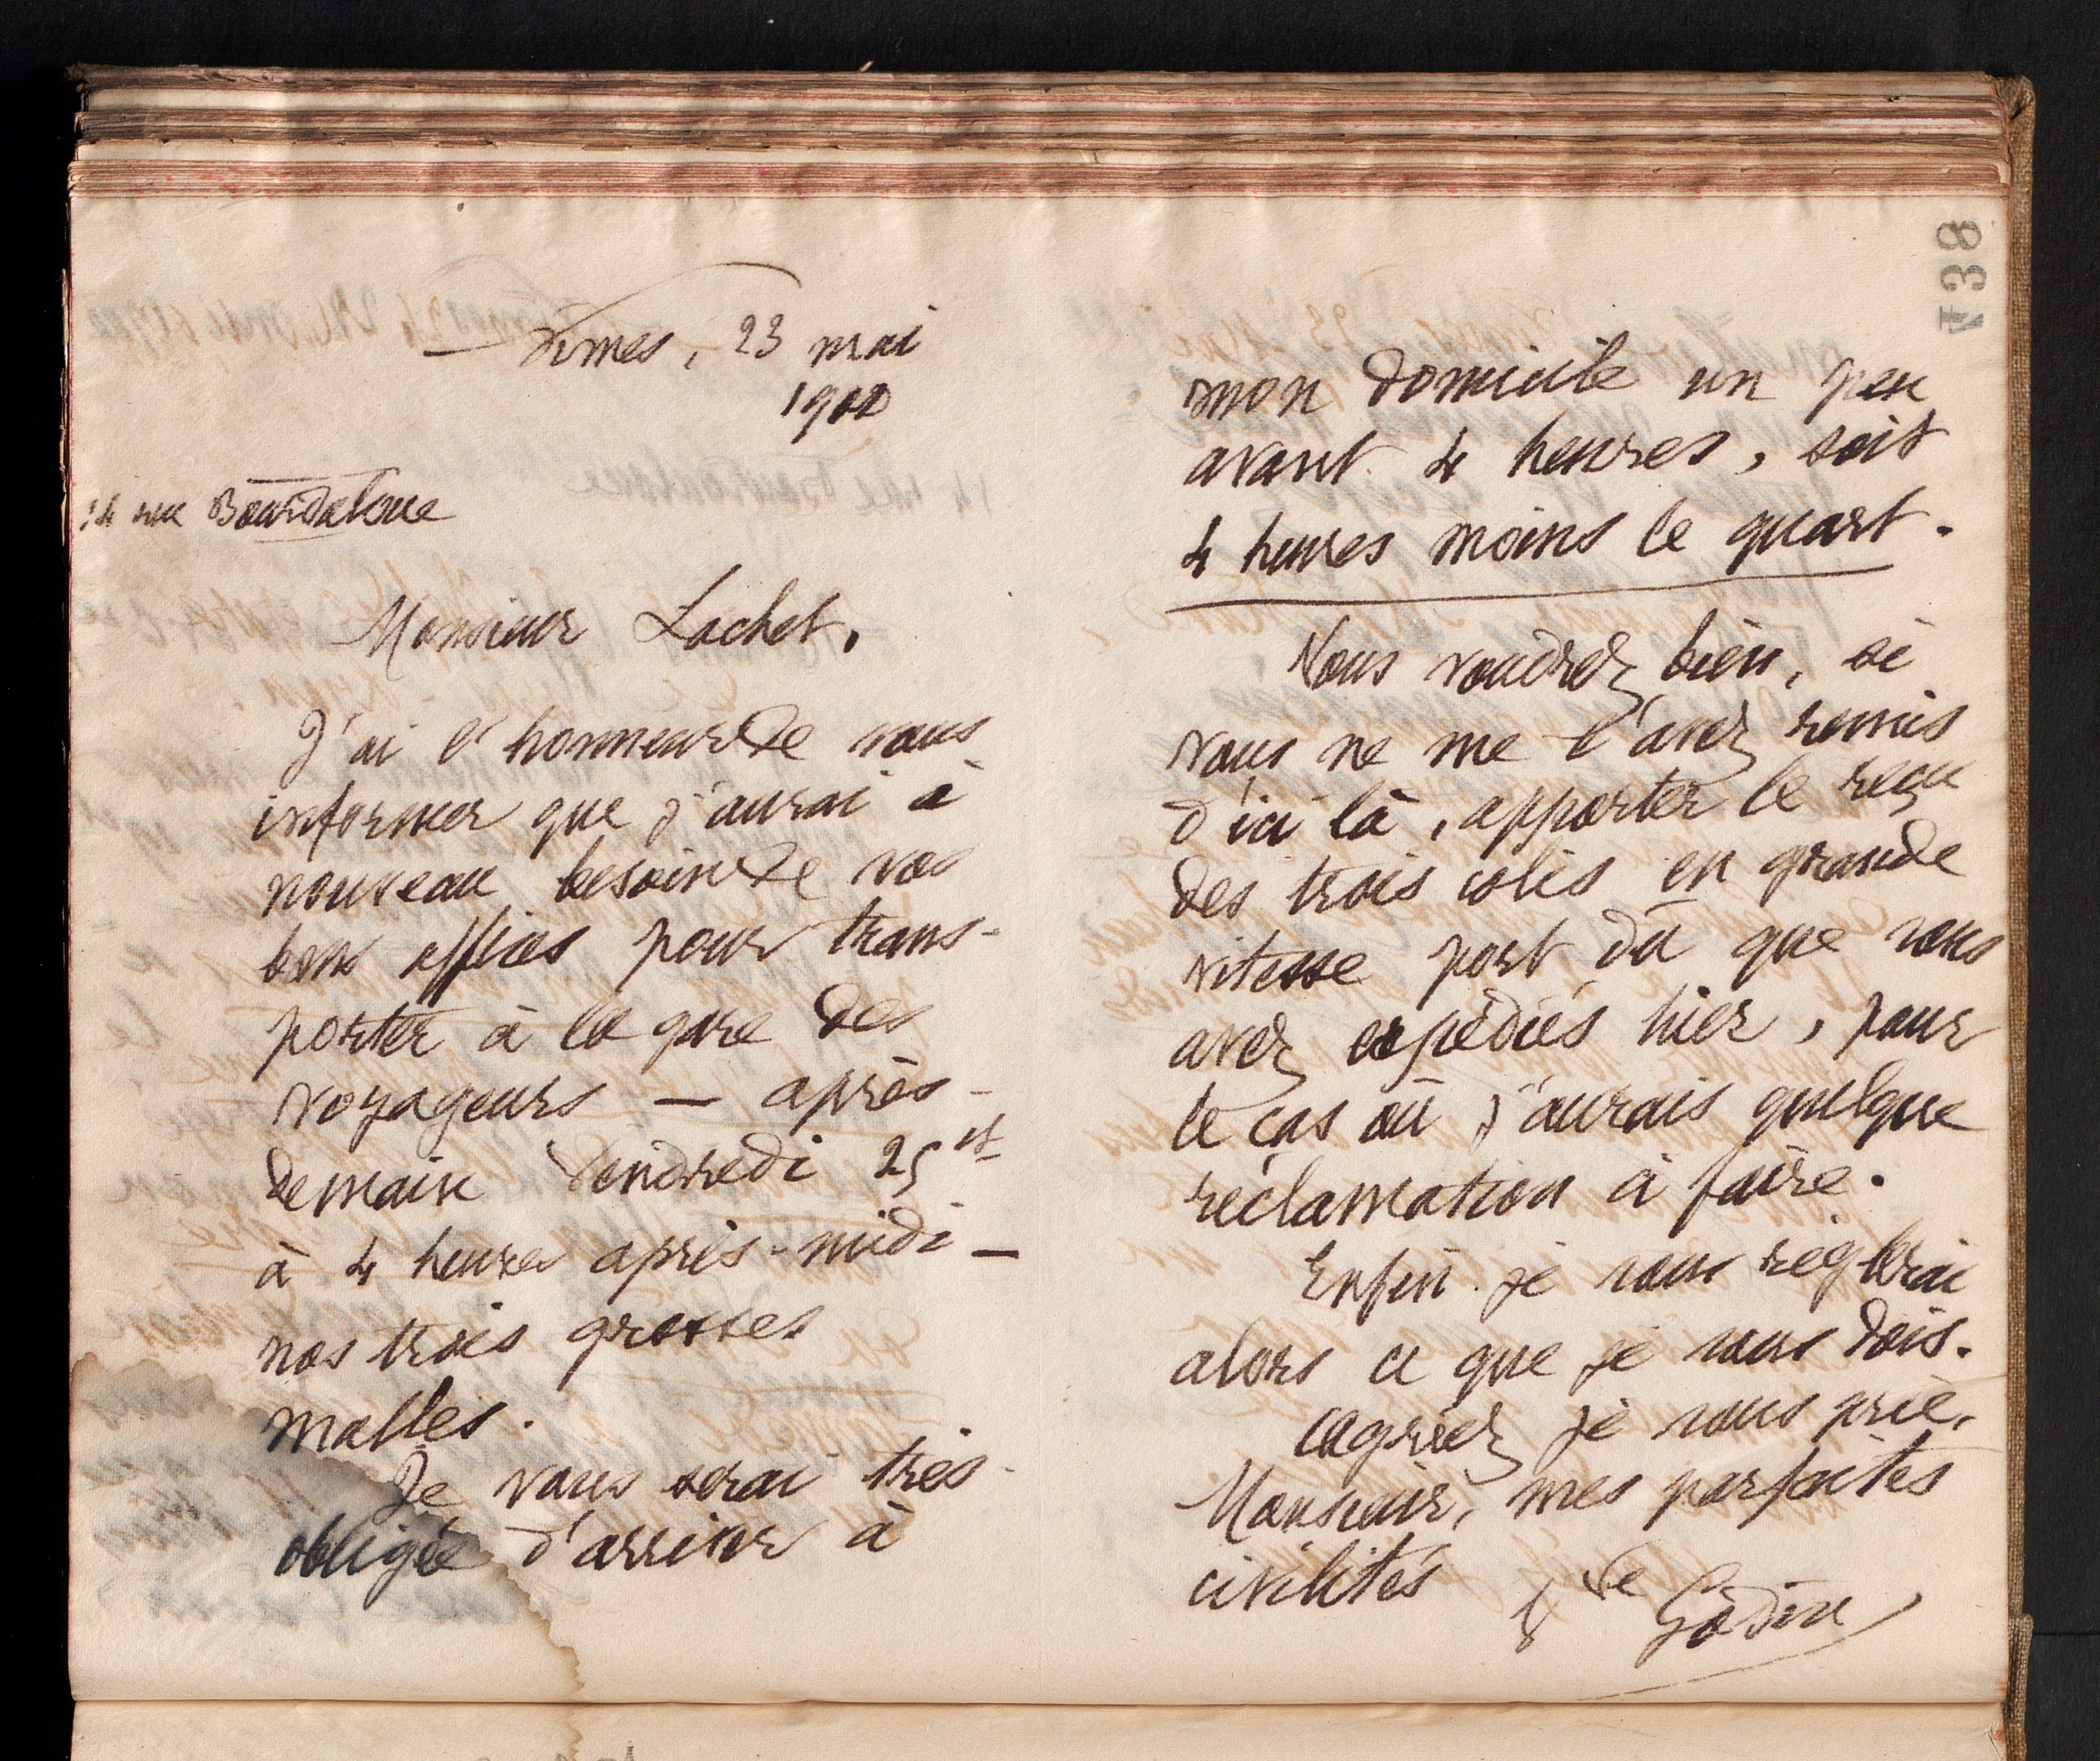 Nîmes, 23 mai
1900
14 rue Bourdaloue
Monsieur Lachet,
J'ai l'honneur de vous
informer que j'aurai à
nouveau besoin de vos
bons offices pour trans-
porter à la gare des
voyageurs — après-
demain Vendredi 25 ct
à 4 heures après-midi —
nos trois grosses
malles.
Je vous serai très
obligée d'arriver à
mon domicile un peu
avant 4 heures, soit
4 heures moins le quart.
Vous voudrez bien, si
vous ne me l'avez remis
d'ici là, apporter le reçu
des trois colis en grande
vitesse port dû que vous
avez expédiés hier, pour
le cas où j'aurais quelque
réclamation à faire.
Enfin je vous règlerai
alors ce que je vous dois.
Agréez je vous prie,
Monsieur, mes parfaites
civilités
Vve Godin
738